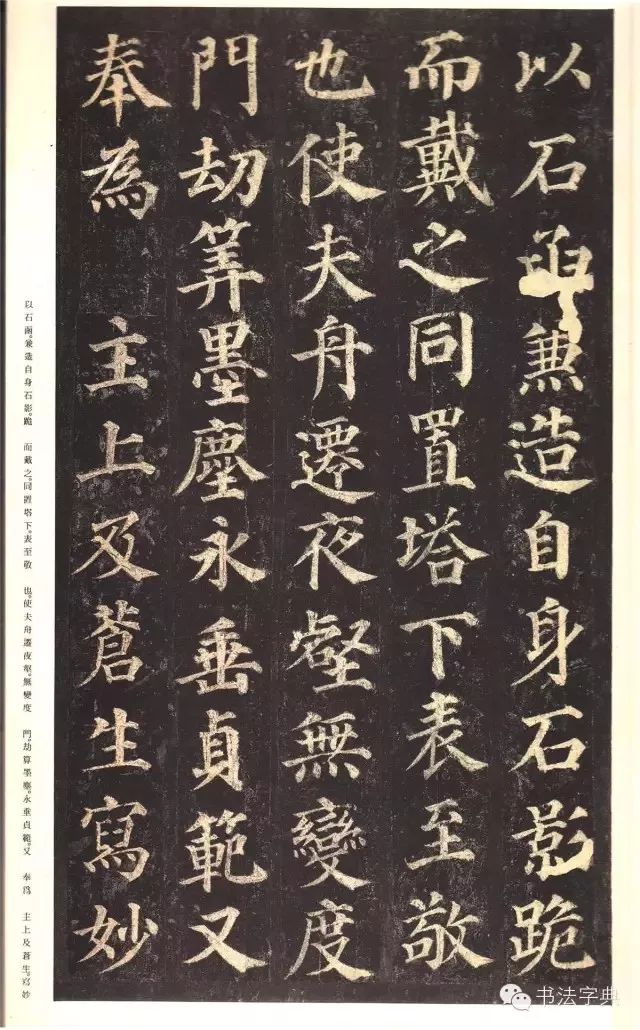 以石函兼造自身石影跪
而戴之同置塔下表至敬
也使夫舟遷夜壑無變度
門劫筭墨塵永垂貞範又
奉為 主上及蒼生寫妙
以石函。兼造自身石影。跪 而戴之。同置塔下。表至敬 也。使夫舟遷夜壑。無變度 門。劫算墨塵。永垂貞範。又 奉爲 主上及蒼生。寫妙
书法字典